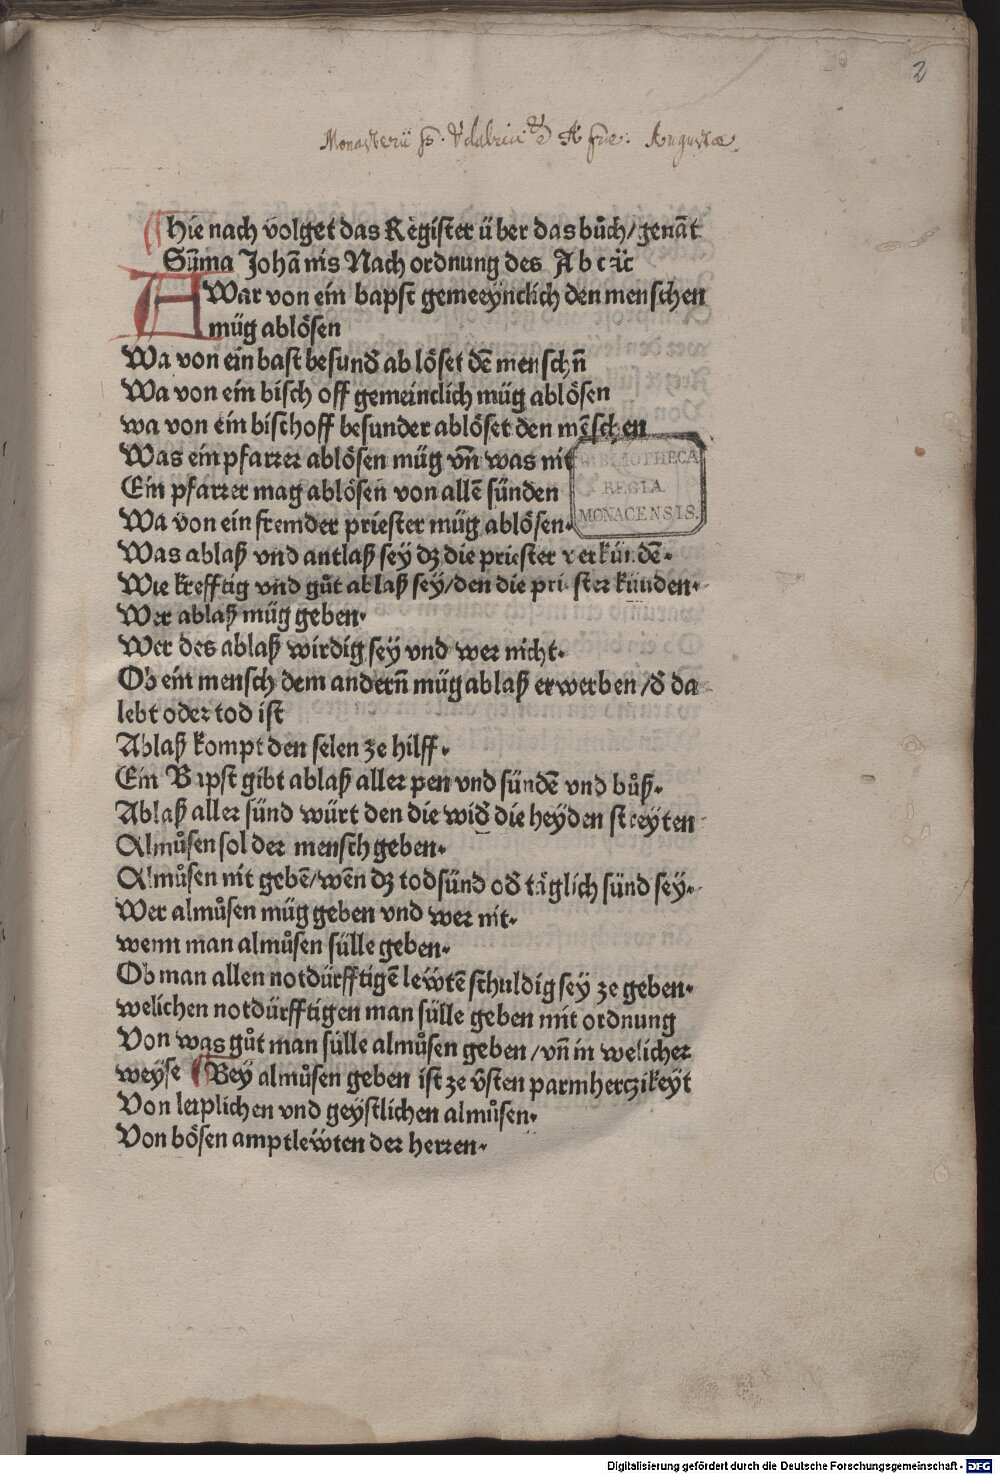 2
Monasterii SS. Udalrici et Afrae. Augustae.
Hie nach volget das Register über das bůch/genāt
Sūma Johānis Nach ordnung des A b c ꝛc̈
A War von ein bapst gemeeynclich den menschen
müg ablösen
Wa von ein bast besunď ab löset dē menschñ
Wa von ein bisch off gemeinclich müg ablösen
wa von ein bischoff besunder ablöset den mēschen
Was ein pfarrer ablösen müg vñ was nit
BIBLIOTHECA
REGIA
MONACENSIS.
Ein pfarrer mag ablösen von allē sünden
Wa von ein fremder priester müg ablösen.
Was ablaß vnd antlaß sey dz die priester verkündē.
Wie krefftig vnd gůt ablaß sey/den die priester künden.
Wer ablaß müg geben.
Wer des ablaß wirdig sey vnd wer nicht.
Ob ein mensch dem anderñ müg ablaß erwerben/ď da
lebt oder tod ist
Ablaß kompt den selen ze hilff.
Ein Bapst gibt ablaß aller pen vnd sündē vnd bůß.
Ablaß aller sünd würt den die wiď die heyden streyten
Almůsen sol der mensch geben.
Almůsen nit gebē/wēn dz todsünd oď täglich sünd sey.
Wer almůsen müg geben vnd wer nit.
wenn man almůsen sülle geben.
Ob man allen notdürfftigē lewtē schuldig sey ze geben.
welichen notdürfftigen man sülle geben mit ordnung
Von was gůt man sülle almůsen geben/vñ in welicher
weyse Bey almůsen geben ist ze v̊sten parmherczikeyt
Von leiplichen vnd geystlichen almůsen.
Von bösen amptlewten der herren.
Digitalisierung gefördert durch die Deutsche Forschungsgemeinschaft - DFG